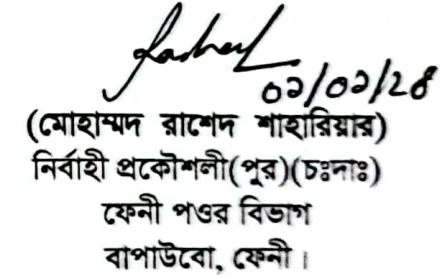 ০১/০১/২৪
(মোহাম্মদ রাশেদ শাহারিয়ার)
নির্বাহী প্রকৌশলী(পুর)(চঃদাঃ)
ফেনী পওর বিভাগ
বাপাউবো, ফেনী।